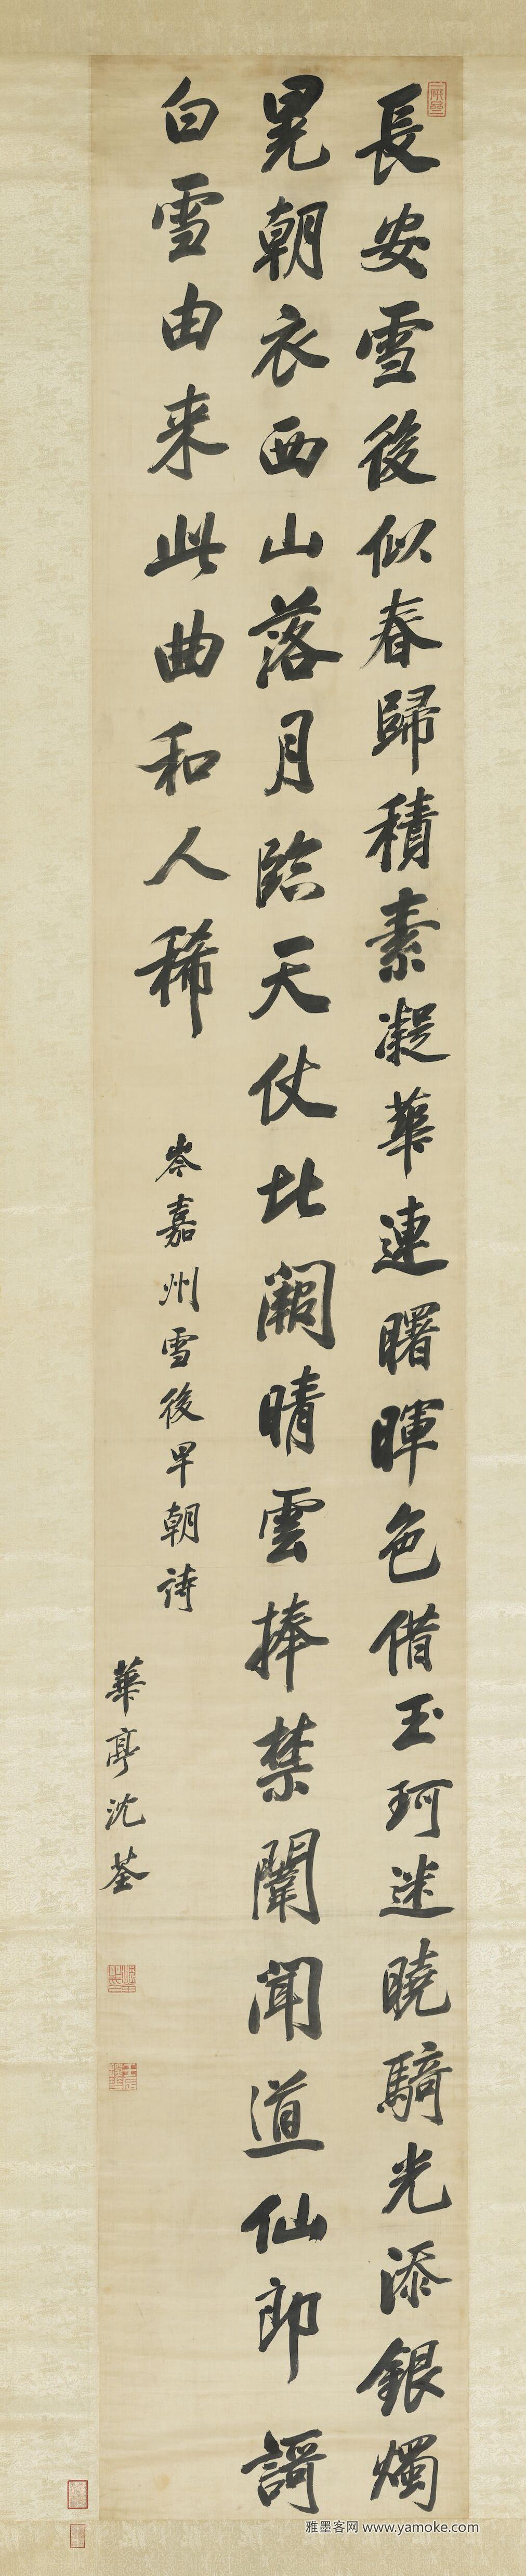 長安雪後似春歸積素凝華連曙暉色借玉珂迷曉騎光添銀燭
晃朝衣西山落月臨天仗北闕晴雲捧禁闈聞道仙郎謌
白雪由来此曲和人稀
岑嘉州雪後早朝詩
華亭沈荃
雅墨客网 www.yamoke.com